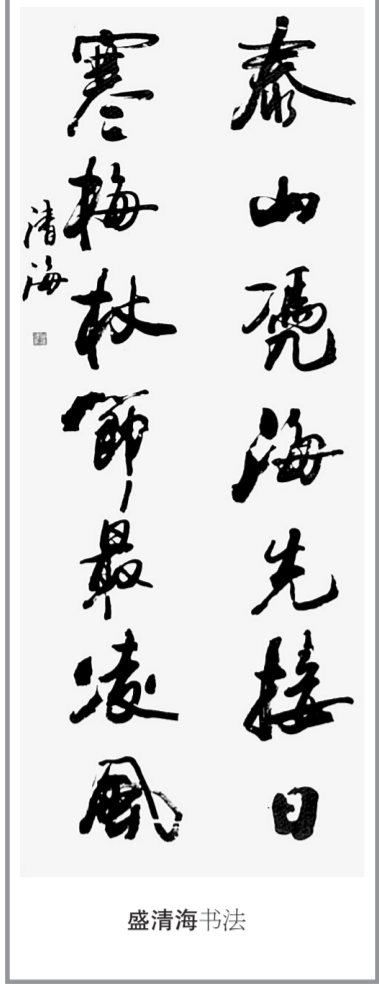 泰山凭海先接日
寒梅杖節最凌風
清海
盛清海书法